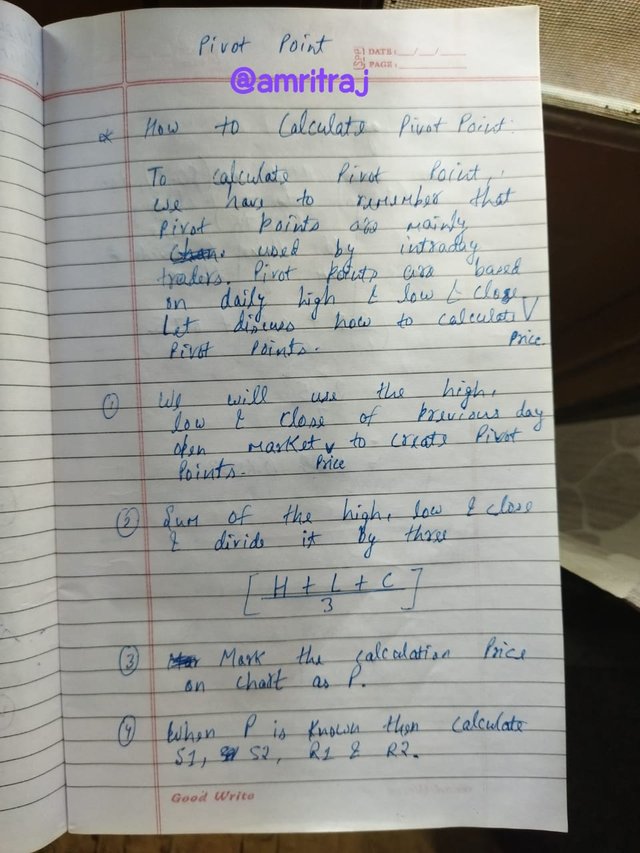 Pivot Point
DATE: __/__/__
PAGE:
@amritraj
* How to Calculate Pivot Point:
To calculate Pivot Point,
we have to remember that
Pivot Points are mainly
used by intraday
traders. Pivot Points are based
on daily high & low & close
Let discuss how to calculate
Price
Pivot Points.
① We will use the high,
low & close of previous day
open market to create Pivot
Price
Points.
② Sum of the high, low & close
& divide it by three
[H + L + C
3]
③ Mark the calculation Price
on chart as P.
④ When P is known then calculate
S1, S2, R1 & R2.
Good Write